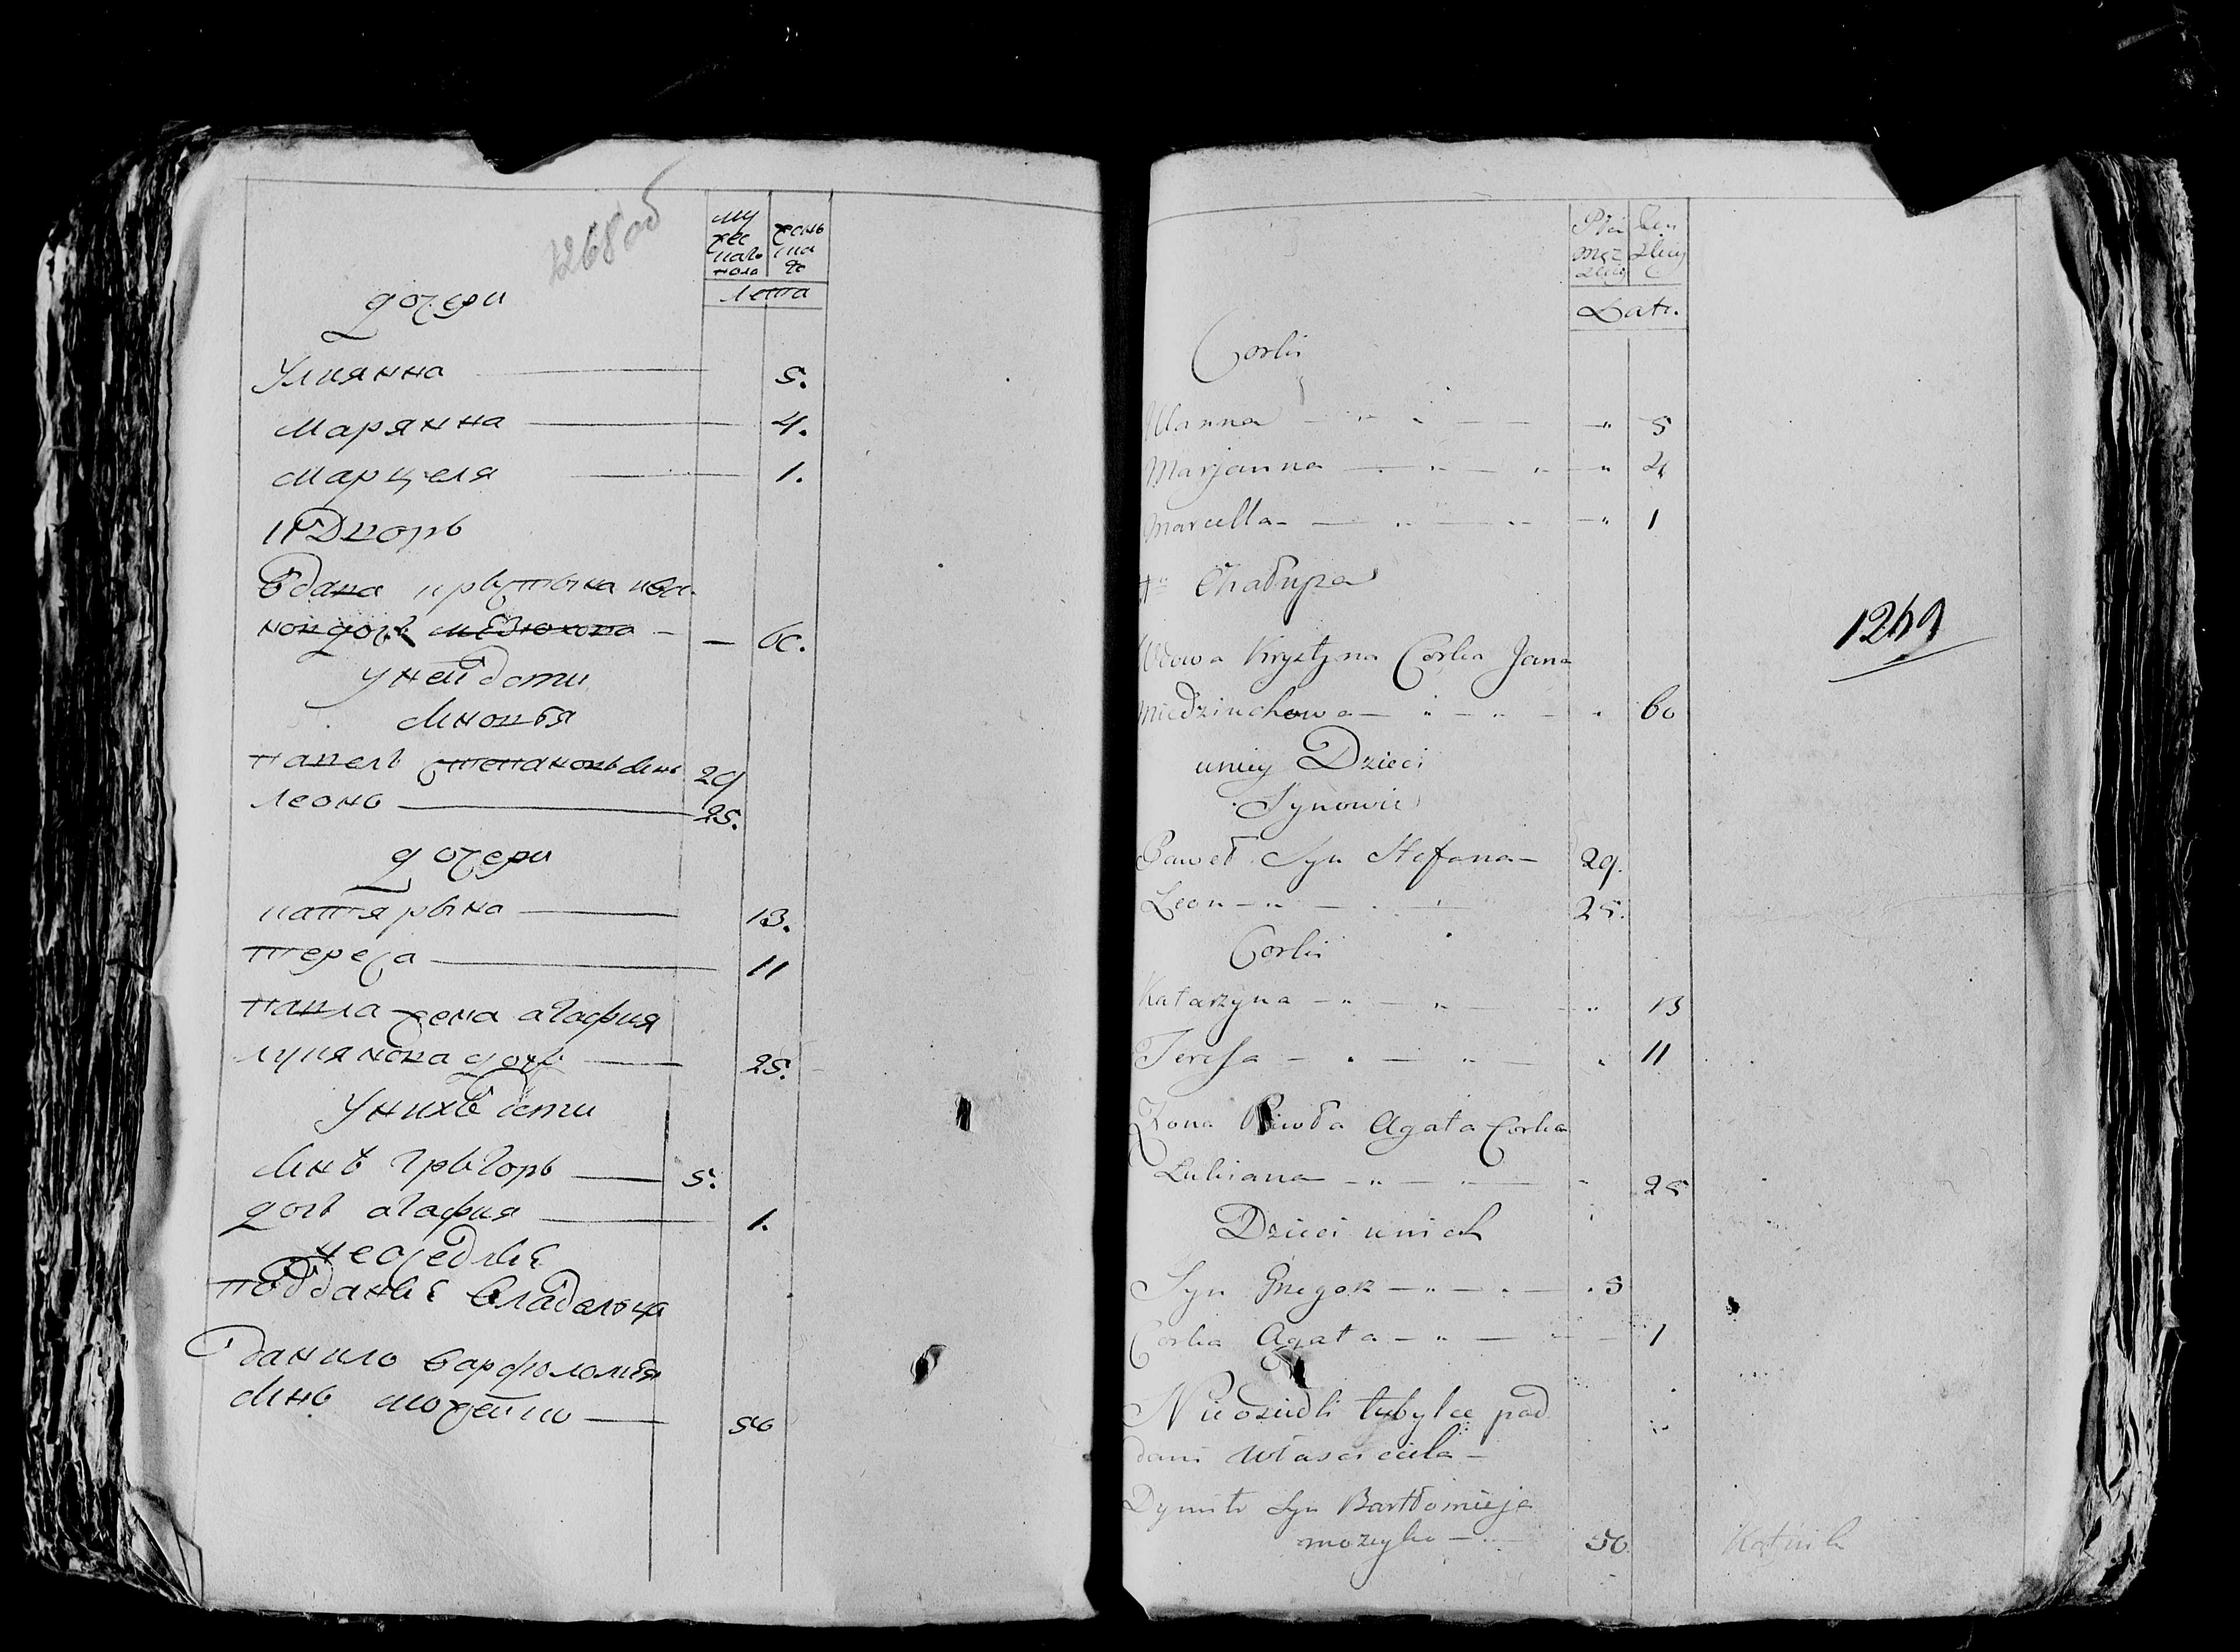 1268 об
му
жес
каго
пола
жень
ска
го
лета
дочери
Улиянна 5.
Марянна 4.
Марцеля 1.
11 Дворъ
Вдава крыстына ива-
нов дочь медзюхова 60.
у ней дети
сыновья
павел степановъ сынъ 29
леонъ 25.
дочери
катярына 13.
тереса 11
павла жена агафия
лукянова дочь 25.
У них дети
сынъ грыгоръ 5.
дочь агафия 1.
неоседлые
подданые владельца
данило варфоломея
сынъ можейко 56
Płci
męz
kiey
żen
skiey
Lata.
Corki
Ulanna 5
Marjanna 4
Marcella 1
Chałupa
Wdowa Krystyna Corka Jana
Miedziuchowa 60
u niey Dzieci
Synowie
Paweł Syn Stefana 29.
Leon 25.
Corki
Katarzyna 13
Teressa 11
Zona Pawła Agata Corka
Lukiana 25
Dzieci u nich
Syn Gregor 5
Corka Agata 1
Nieosiedli tubylce pod
dani własciciela
Dymitr Syn Bartłomieja
mozeyko 56
1269